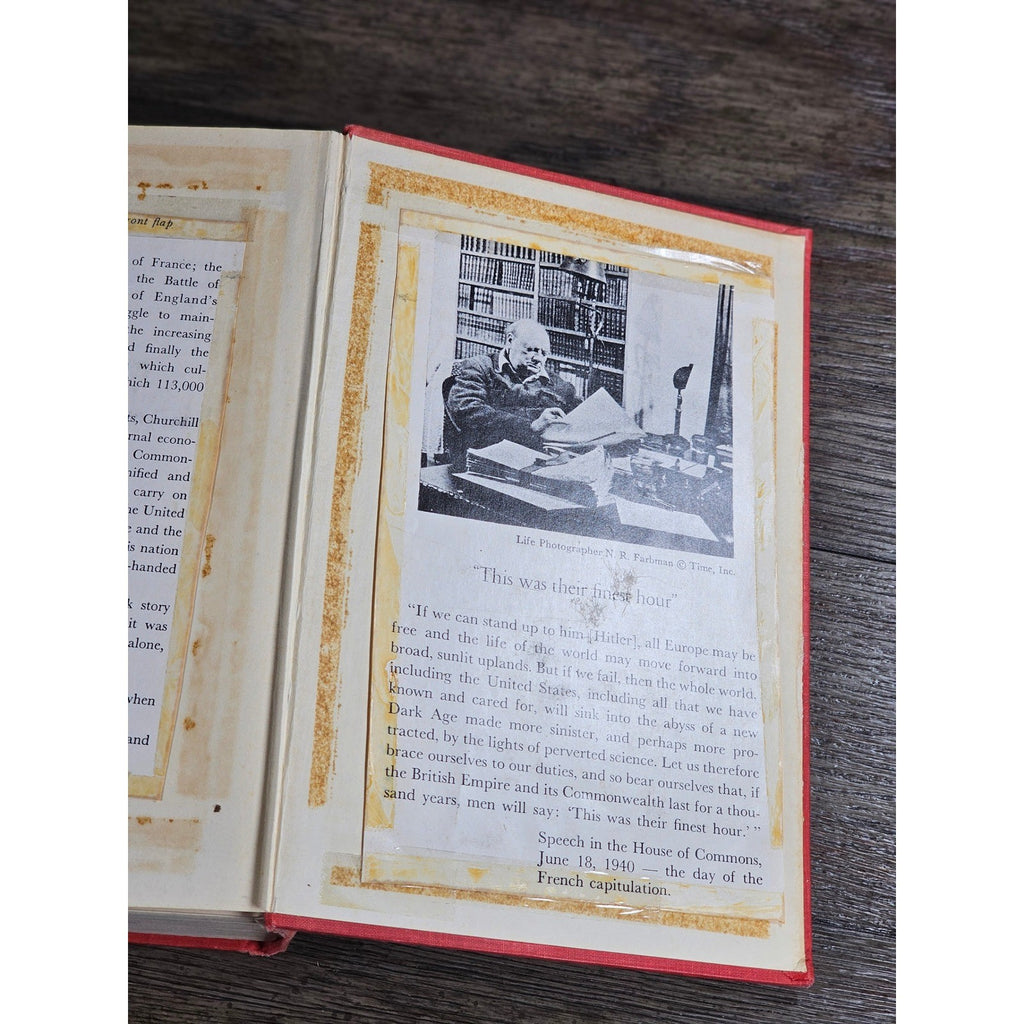 ont flap
of France; the
the Battle of
of England's
ggle to main-
he increasing
d finally the
which cul-
hich 113,000
ts, Churchill
rnal econo-
Common-
nified and
carry on
he United
e and the
is nation
-handed
k story
it was
alone,
when
and
Life Photographer N. R. Farbman © Time, Inc.
"This was their finest hour"
"If we can stand up to him [Hitler], all Europe may be
free and the life of the world may move forward into
broad, sunlit uplands. But if we fail, then the whole world,
including the United States, including all that we have
known and cared for, will sink into the abyss of a new
Dark Age made more sinister, and perhaps more pro-
tracted, by the lights of perverted science. Let us therefore
brace ourselves to our duties, and so bear ourselves that, if
the British Empire and its Commonwealth last for a thou-
sand years, men will say: 'This was their finest hour.' "
Speech in the House of Commons,
June 18, 1940 — the day of the
French capitulation.